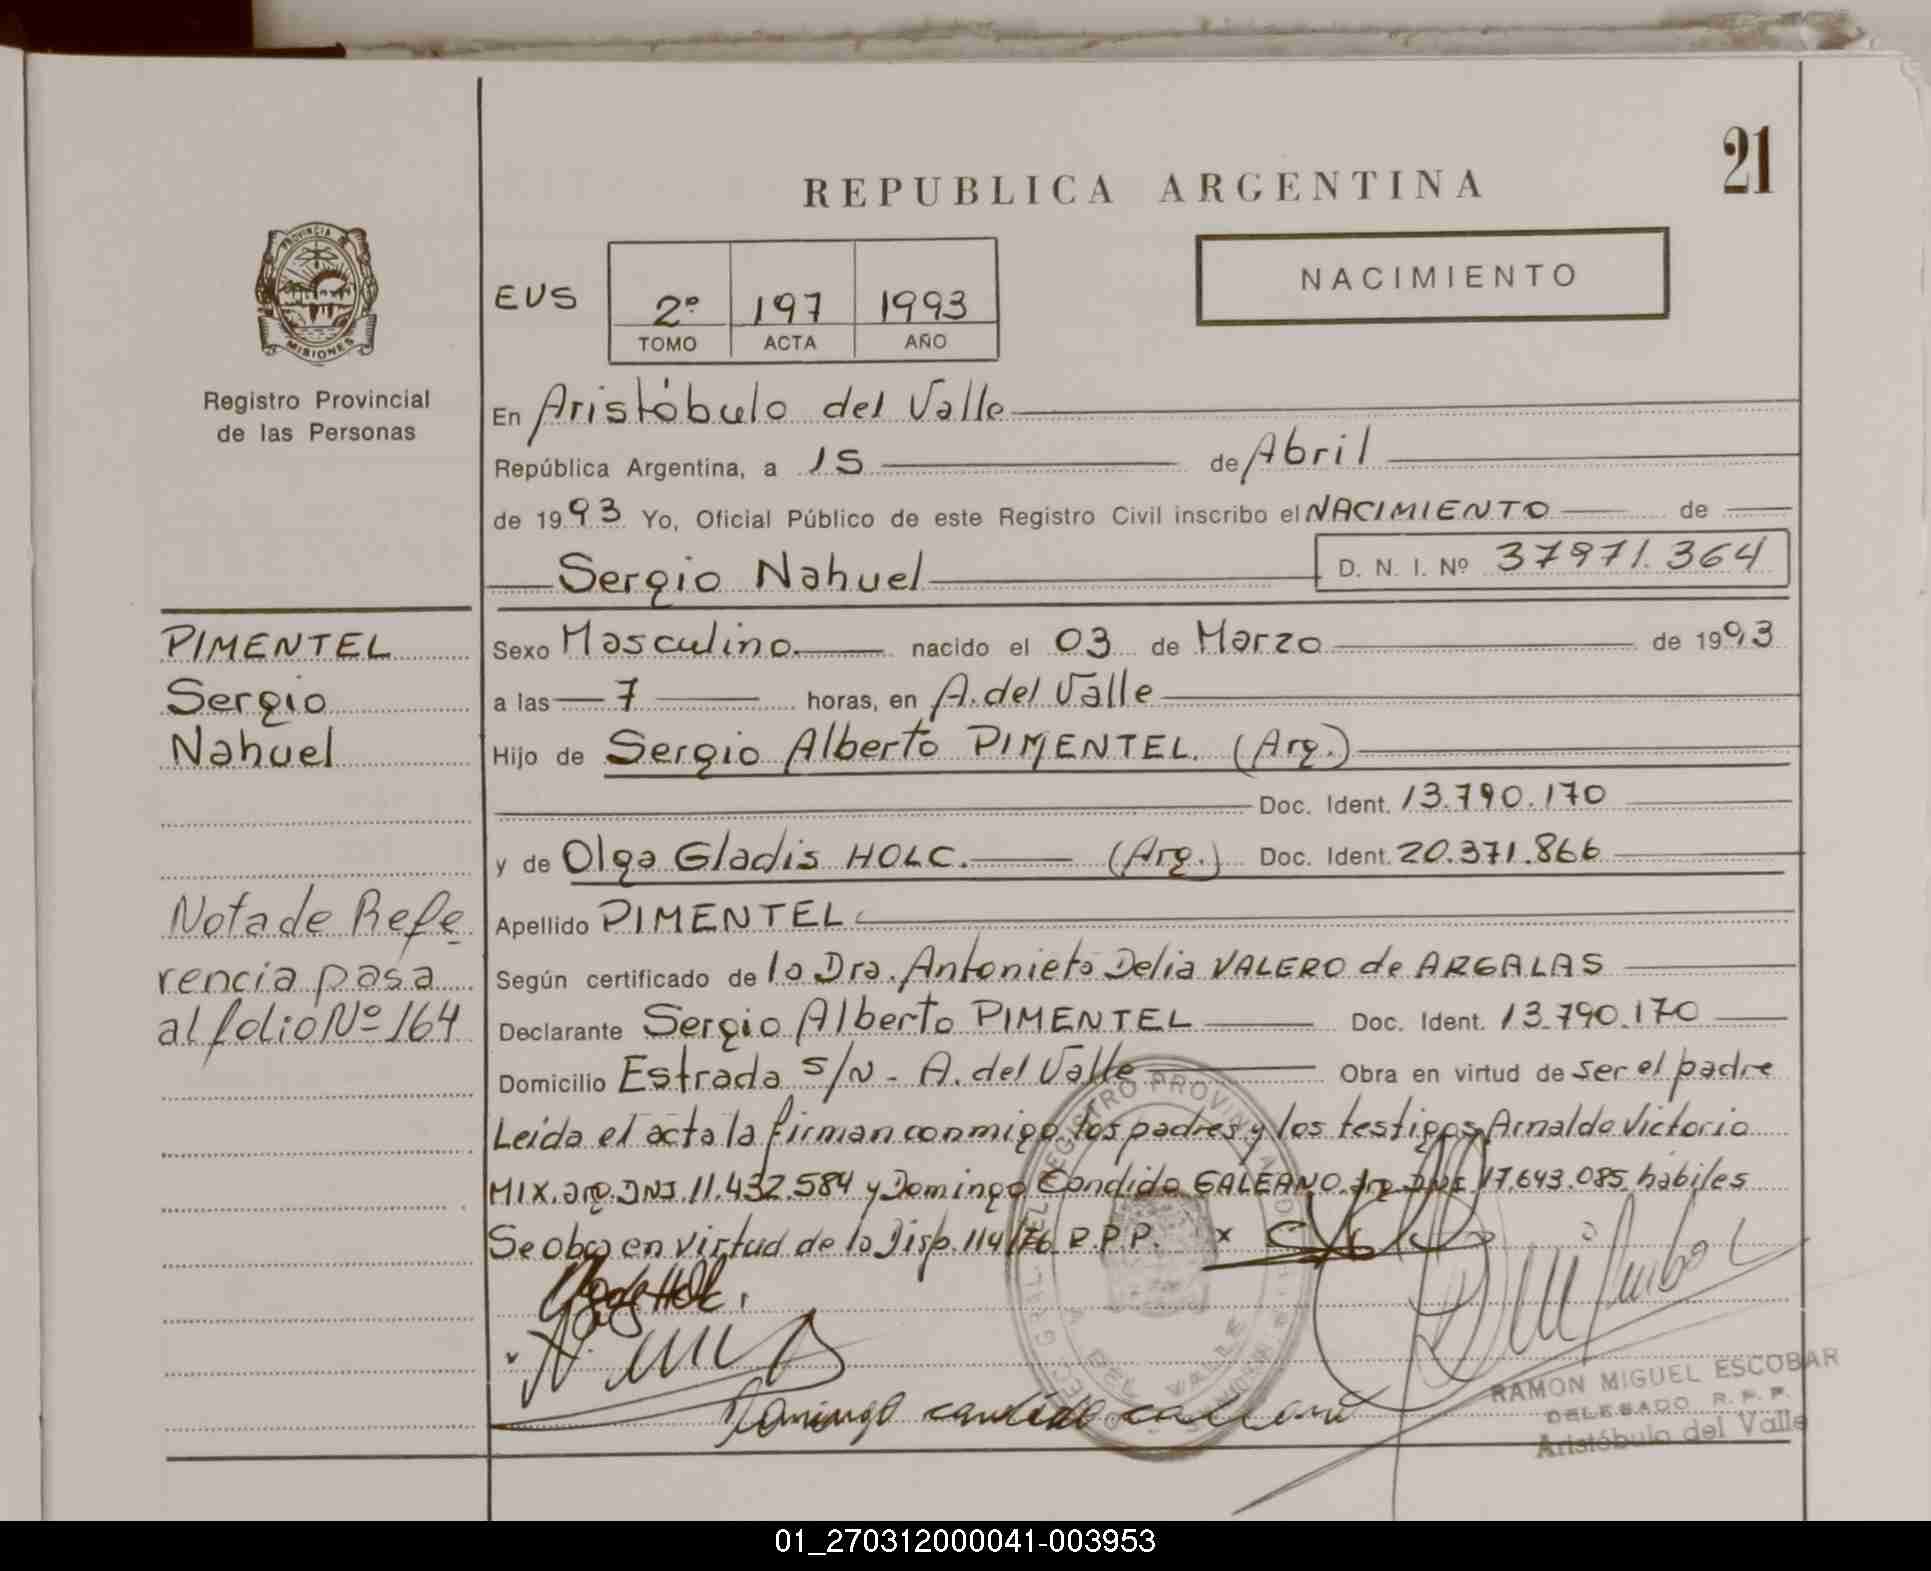 21
REPUBLICA ARGENTINA
PROVINCIA DE
MISIONES
Registro Provincial
de las Personas
EUS
2º 197 1993
TOMO ACTA AÑO
NACIMIENTO
En Aristóbulo del Valle
República Argentina, a 15 de Abril
de 1993 Yo, Oficial Público de este Registro Civil inscribo el NACIMIENTO de
Sergio Nahuel D. N. I. Nº 37971.364
PIMENTEL
Sergio
Nahuel
Sexo Masculino. nacido el 03 de Marzo de 1993
a las 7 horas, en A. del Valle
Hijo de Sergio Alberto PIMENTEL. (Arg.)
Doc. Ident. 13.790.170
y de Olga Gladis HOLC. (Arg.) Doc. Ident. 20.371.866
Nota de Refe
rencia pasa
al folio Nº 164
Apellido PIMENTEL
Según certificado de la Dra. Antonieta Delia VALERO de ARGALAS
Declarante Sergio Alberto PIMENTEL Doc. Ident. 13.790.170
Domicilio Estrada s/n - A. del Valle Obra en virtud de ser el padre
Leída el acta la firman conmigo, los padres y los testigos Arnaldo Victorio
MIX. arg. DNI. 11.432.584 y Domingo Candido GALEANO. arg. DNI 17.643.085. hábiles
Se obra en virtud de la Disp. 114/76 R.P.P. x
Domingo candido
RAMON MIGUEL ESCOBAR
DELEGADO R. P. P.
Aristóbulo del Valle
01_270312000041-003953